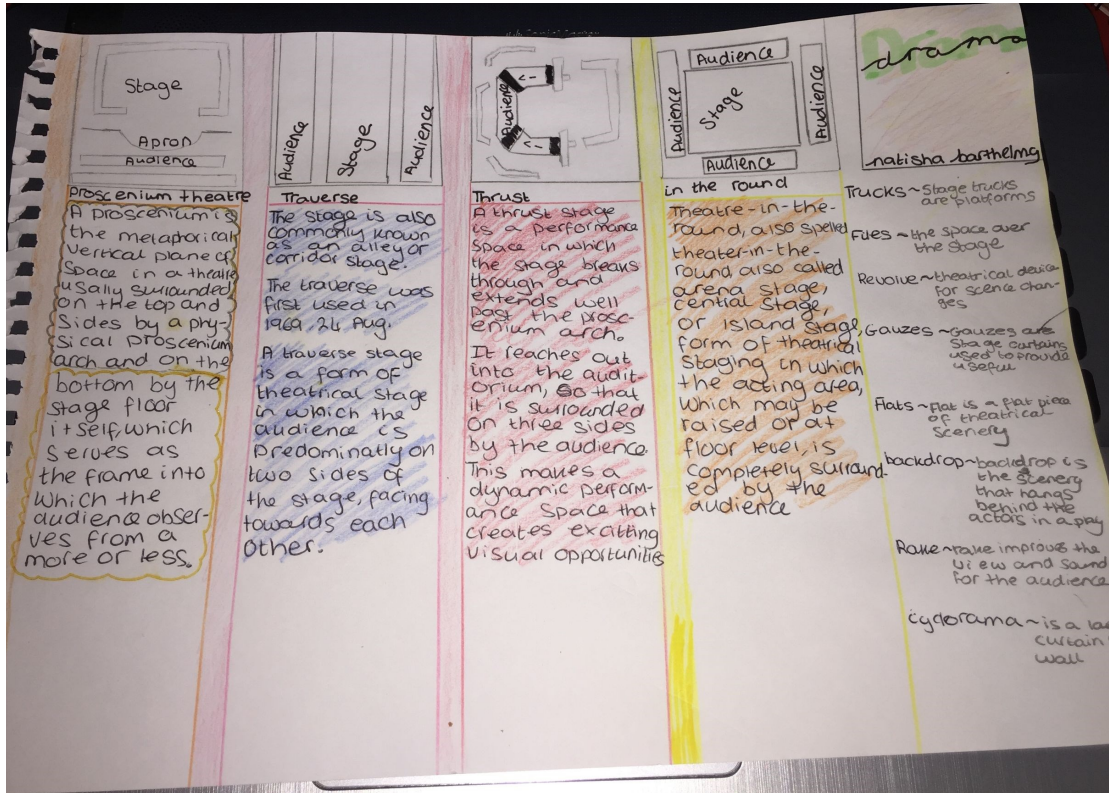 Stage
Apron
Audience
proscenium theatre
A proscenium is
the metaphorical
vertical plane of
space in a theatre
usally surrounded
on the top and
sides by a phy-
sical proscenium
arch and on the
bottom by the
stage floor
itself, which
serves as
the frame into
which the
audience obser-
ves from a
more or less.
Audience
Stage
Audience
Traverse
The stage is also
commonly known
as an alley or
corridor stage.
The traverse was
first used in
1969, 24 Aug.
A traverse stage
is a form of
theatrical stage
in which the
audience is
predominatly on
two sides of
the stage, facing
towards each
other.
Audience
Thrust
A thrust stage
is a performance
space in which
the stage breaks
through and
extends well
past the prosc-
enium arch.
It reaches out
into the audit-
orium, so that
it is surrounded
on three sides
by the audience.
This makes a
dynamic perform-
ance space that
creates excitting
visual opportunities
Audience
Audience
Stage
Audience
Audience
in the round
Theatre-in-the-
round, also spelled
theater-in-the-
round also called
arena stage,
central stage,
or island stage,
form of theatrical
staging in which
the acting area,
which may be
raised or at
floor level, is
completely surround-
ed by the
audience
drama
natisha barthelmy
Trucks~Stage trucks
are platforms
Flies~the space over
the stage
Revolve~theatrical device
for scence chan-
ges
Gauzes~Gauzes are
stage curtains
used to provide
useful
Flats~Flat is a flat piece
of theatrical
scenery
backdrop~backdrop is
the scenery
that hangs
behind the
actors in a play
Rake~rake improves the
view and sound
for the audience
cyclorama~is a
curtain
wall